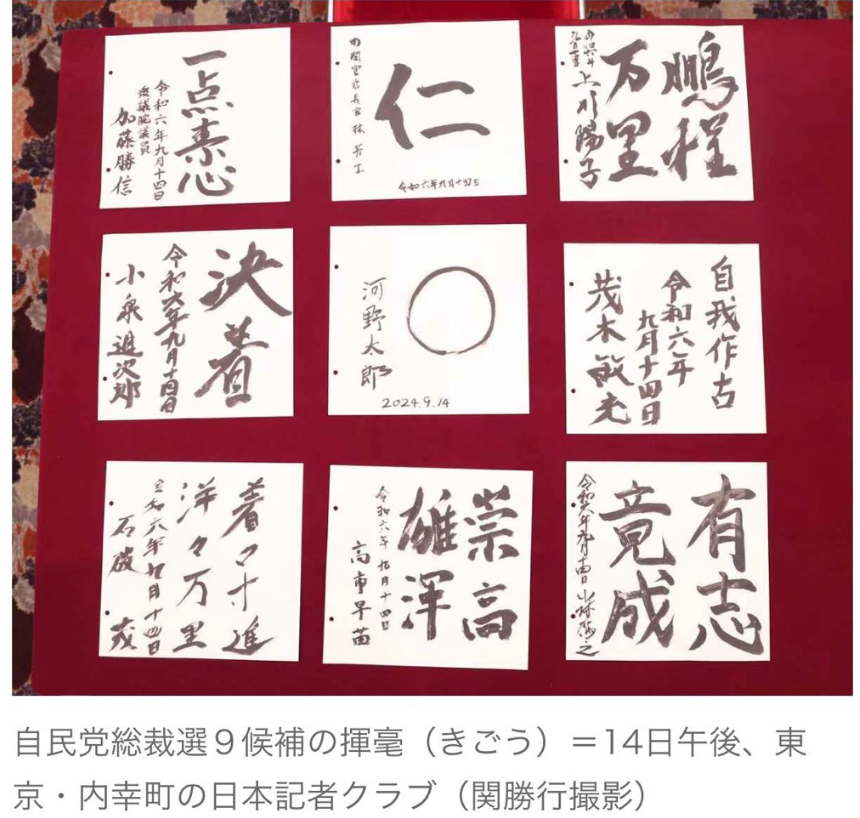 一点素心
令和六年九月十四日
衆議院議員
加藤勝信
仁
内閣官房長官 林 芳正
令和六年九月十四日
鵬程
万里
令和六年
九月十四日
上川陽子
決着
令和六年九月十四日
小泉進次郎
河野太郎
2024.9.14
自我作古
令和六年
九月十四日
茂木敏充
着々寸進
洋々万里
令和六年九月十四日
石破 茂
崇高
雄渾
令和六年九月十四日
高市早苗
有志
竟成
令和六年九月十四日 小林鷹之
自民党総裁選９候補の揮毫（きごう）＝14日午後、東
京・内幸町の日本記者クラブ（関勝行撮影）